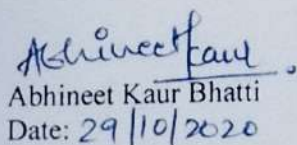 Abhineet Kaur.
Abhineet Kaur Bhatti
Date: 29/10/2020